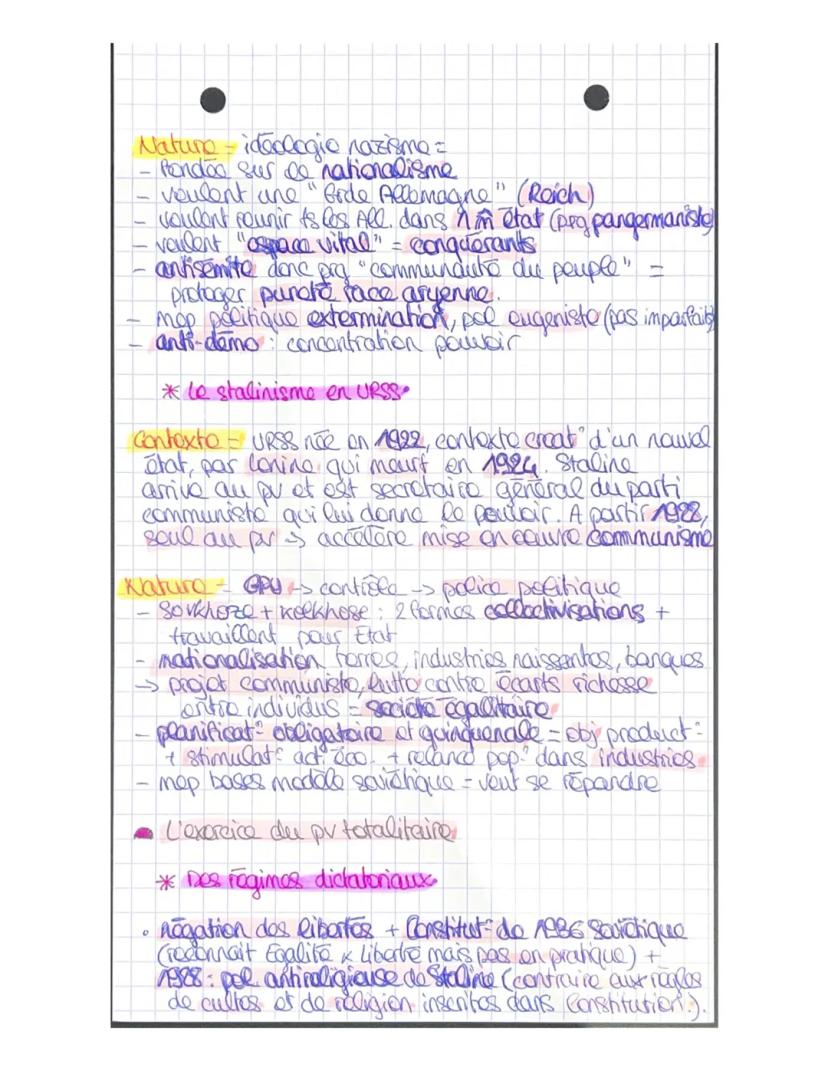 Nature = idéologie nazisme =
- fondée sur le nationalisme
- veulent une "Grde Allemagne" (Reich)
- veulent réunir ts les All. dans 1 m̂ État (prg pangermaniste)
- veulent "espace vital" = conquérants
- antisémite donc prg "communauté du peuple" =
protéger pureté race aryenne.
- mep politique extermination, pol eugéniste (pas imparfaits)
- anti-démo : concentration pouvoir
* Le stalinisme en URSS
Contexte = URSS née en 1922, contexte créat° d'un nouvel
État, par Lénine qui meurt en 1924. Staline
arrive au pv et est secrétaire général du parti
communiste qui lui donne le pouvoir. A partir 1928,
seul au pv → accélère mise en oeuvre communisme
Nature - GPU → contrôle → police politique
- Sovkhoze + kolkhose : 2 formes collectivisations +
travaillent pour État
- nationalisation terres, industries naissantes, banques
→ projet communiste, lutte contre écarts richesse
entre individus = société égalitaire
- planificat° obligatoire et quinquenale = obj product°
+ stimulat° act. éco. + relance pop° dans industries.
- mep bases modèle soviétique = veut se répandre
L'exercice du pv totalitaire
* Des régimes dictatoriaux
• négation des libertés + Constitut° de 1936 Soviétique
(reconnaît Égalité & Liberté mais pas en pratique) +
1928 : pol antireligieuse de Staline (contraire aux règles
de cultes et de religion inscrites dans Constitution).